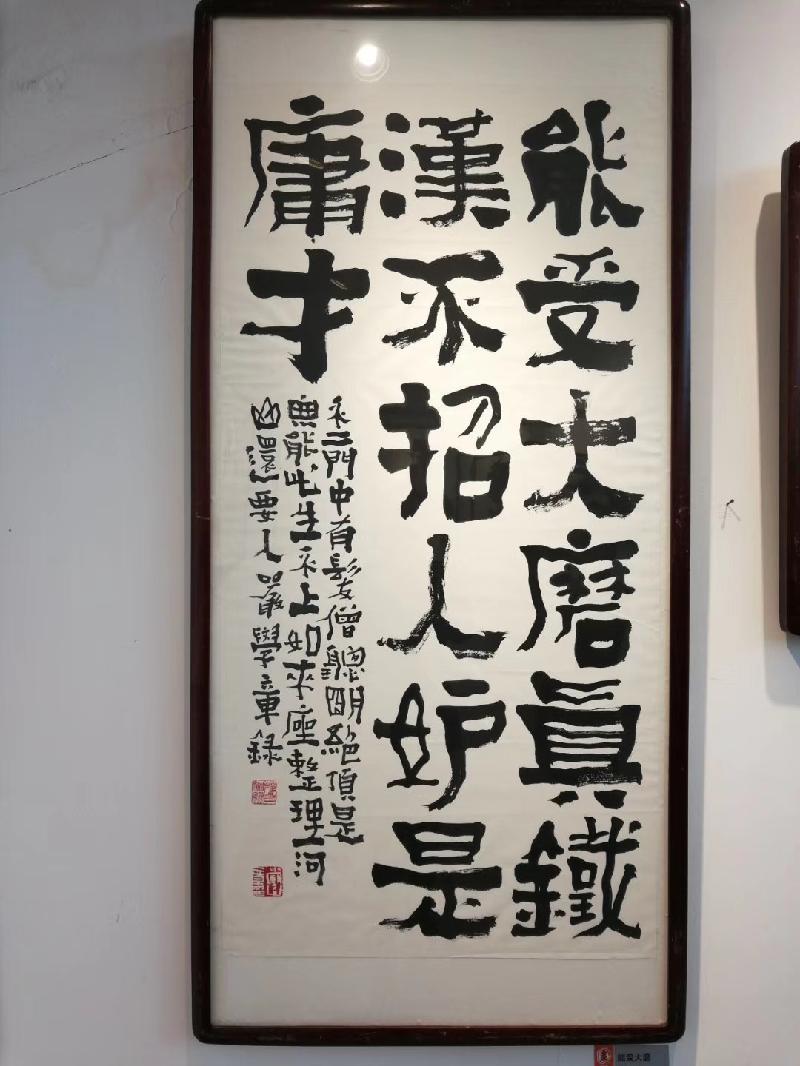 能受大磨眞鐵
漢不招人妒是
庸才
不二門中有髮僧聰明絕頂是
無能此生不上如來座整理河
山還要人嚴學章錄
能受大磨